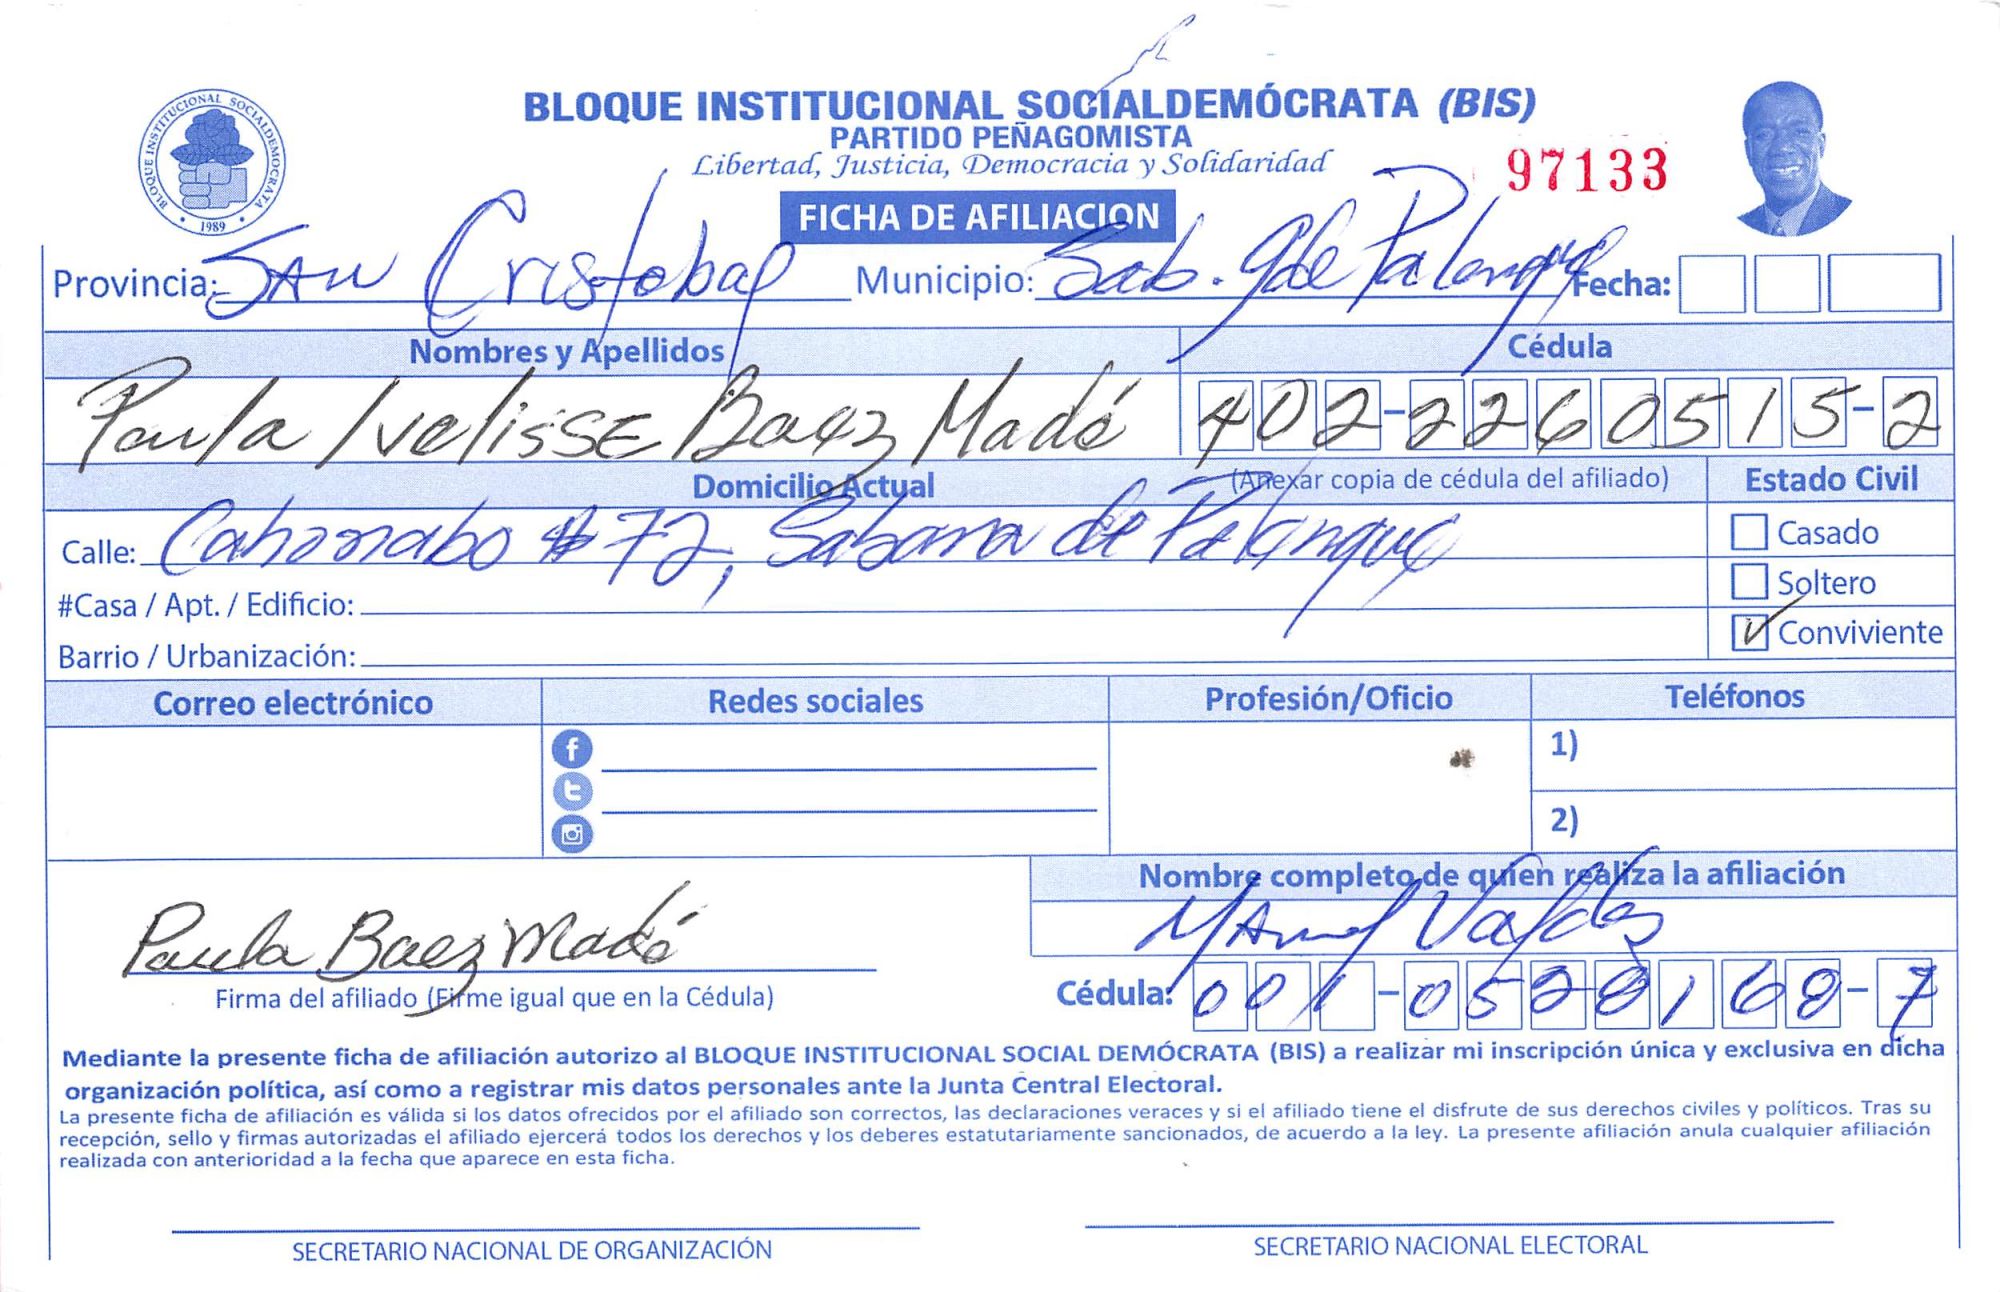 BLOQUE INSTITUCIONAL SOCIALDEMÓCRATA (BIS)
PARTIDO PEÑAGOMISTA
Libertad, Justicia, Democracia y Solidaridad
97133
BLOQUE INSTITUCIONAL SOCIALDEMOCRATA
1989
FICHA DE AFILIACION
Provincia: SAN Cristobal Municipio: Sab. Gde Palenque Fecha:
Nombres y Apellidos Cédula
Paula Ivelisse Baez Madé 402-2260515-2
Domicilio Actual (Anexar copia de cédula del afiliado) Estado Civil
Calle: Cahonabo # 72, Sabana de Palenque
Casado
#Casa / Apt. / Edificio:
Soltero
Barrio / Urbanización:
Conviviente
Correo electrónico Redes sociales Profesión/Oficio Teléfonos
1)
2)
Nombre completo de quien realiza la afiliación
Manuel Valdes
Paula Baez Madé
Firma del afiliado (Firme igual que en la Cédula)
Cédula: 001-0528168-7
Mediante la presente ficha de afiliación autorizo al BLOQUE INSTITUCIONAL SOCIAL DEMÓCRATA (BIS) a realizar mi inscripción única y exclusiva en dicha
organización política, así como a registrar mis datos personales ante la Junta Central Electoral.
La presente ficha de afiliación es válida si los datos ofrecidos por el afiliado son correctos, las declaraciones veraces y si el afiliado tiene el disfrute de sus derechos civiles y políticos. Tras su
recepción, sello y firmas autorizadas el afiliado ejercerá todos los derechos y los deberes estatutariamente sancionados, de acuerdo a la ley. La presente afiliación anula cualquier afiliación
realizada con anterioridad a la fecha que aparece en esta ficha.
SECRETARIO NACIONAL DE ORGANIZACIÓN
SECRETARIO NACIONAL ELECTORAL